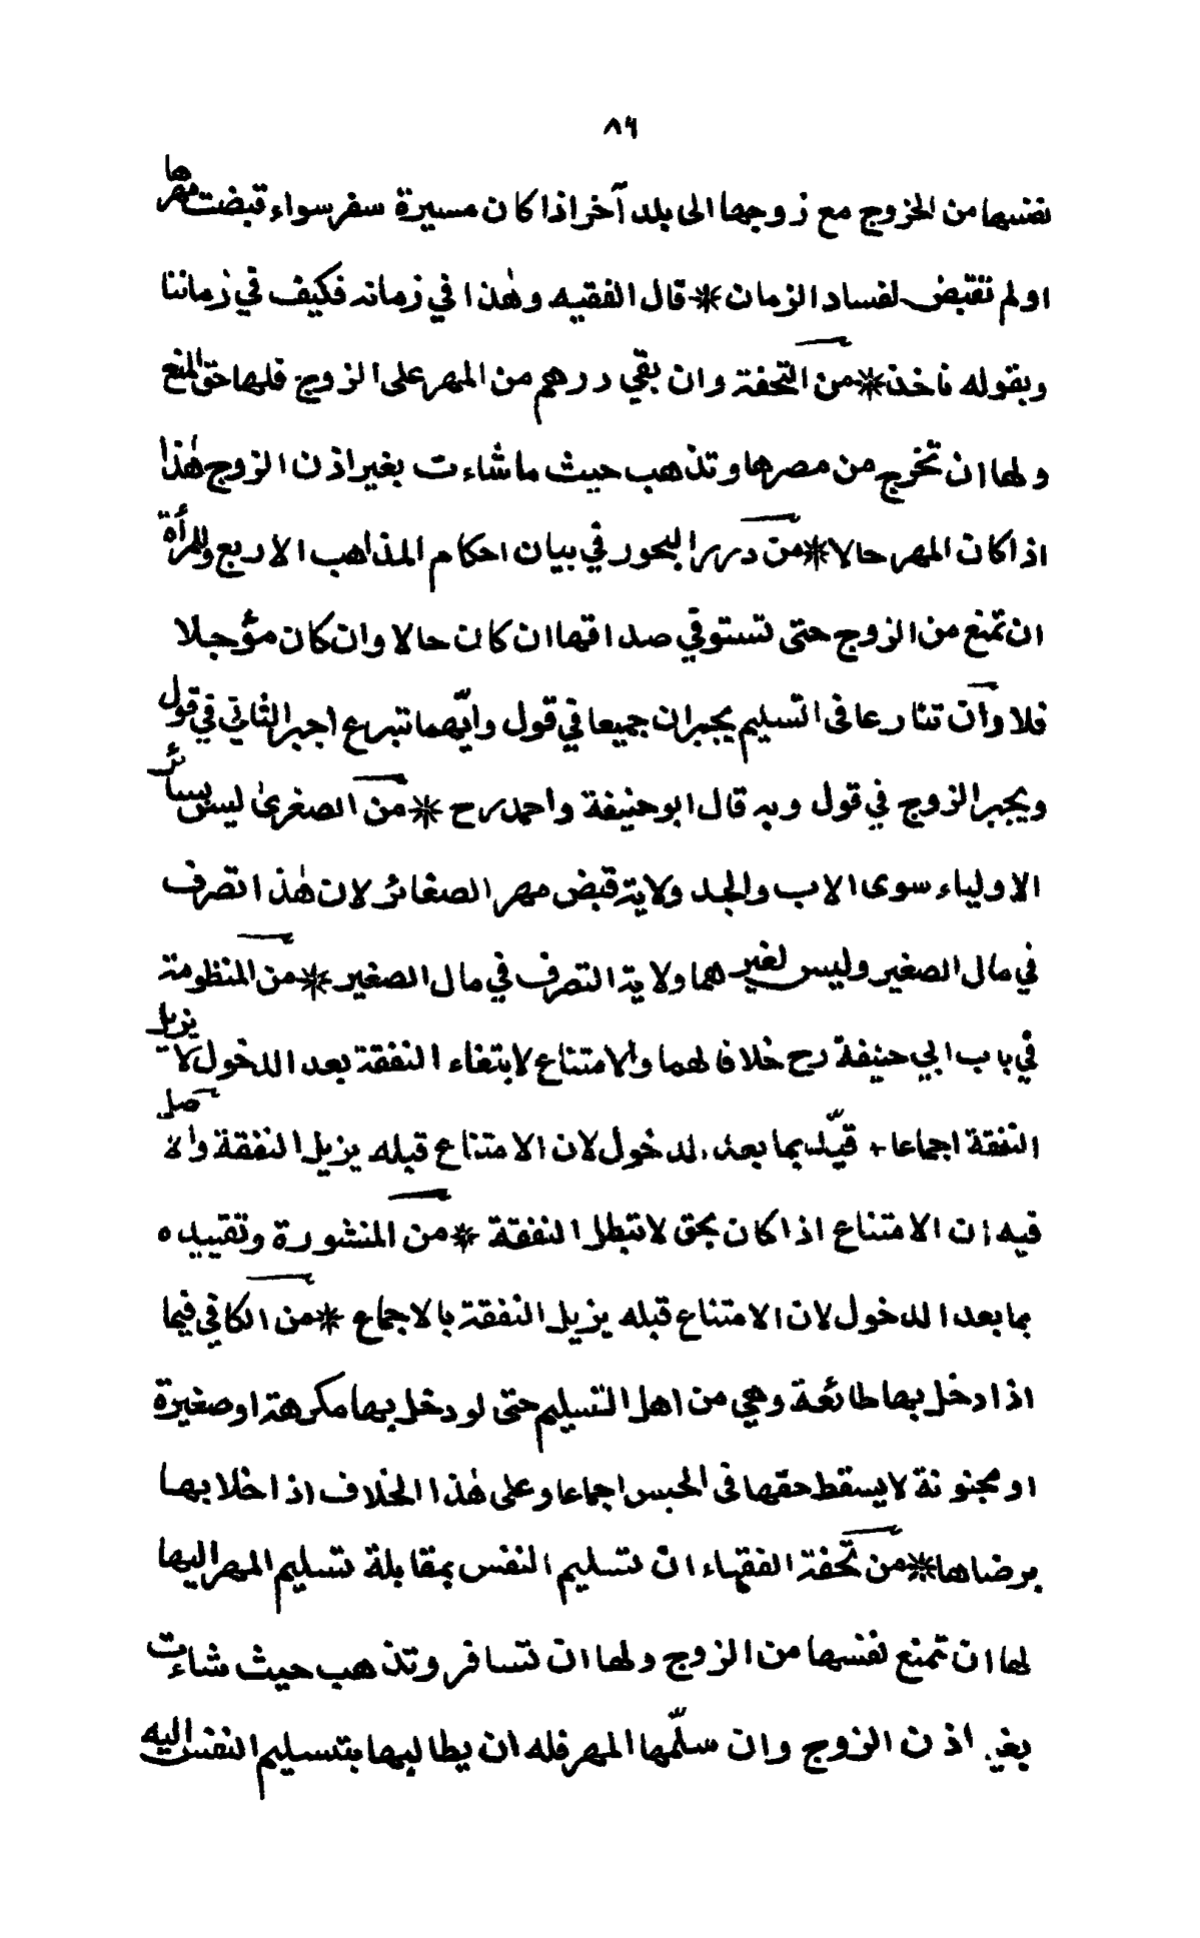 ٨٦
نفسها من الخروج مع زوجها الى بلد آخر اذا كان مسيرة سفر سواء قبضت مهرها
او لم تقبض لفساد الزمان * قال الفقيه وهٰذا في زمانه فكيف في زماننا
وبقوله ناخذ * من التحفة وان بقي درهم من المهر على الزوج فلها حق المنع
ولها ان تخرج من مصرها وتذهب حيث ما شاءت بغير اذن الزوج هٰذا
اذا كان المهر حالا * من درر البحور في بيان احكام المذاهب الاربع وللمرأة
ان تمنع من الزوج حتى تستوفي صداقها ان كان حالا وان كان مؤجلا
فلا وان تنازعا فى التسليم يجبران جميعا في قول وايّهما تبرع اجبر الثاني في قول
ويجبر الزوج في قول وبه قال ابو حنيفة واحمد رح * من الصغرىٰ ليس لسائر
الاولياء سوى الاب والجد ولاية قبض مهر الصغائر لان هٰذا تصرف
في مال الصغير وليس لغيرهما ولاية التصرف في مال الصغير * من المنظومة
في باب ابي حنيفة رح خلافا لهما والامتناع لابتغاء النفقة بعد الدخول لا يزيل
النفقة اجماعا + قيّد بما بعد الدخول لان الامتناع قبله يزيل النفقة والاصل
فيه ان الامتناع اذا كان بحق لا تبطل النفقة * من المنشورة وتقييده
بما بعد الدخول لان الامتناع قبله يزيل النفقة بالاجماع * من الكافي فيما
اذا دخل بها طائعة وهي من اهل التسليم حتى لو دخل بها مكرهة او صغيرة
او مجنونة لا يسقط حقها فى الحبس اجماعا وعلى هٰذا الخلاف اذا خلا بها
برضاها * من تحفة الفقهاء ان تسليم النفس بمقابلة تسليم المهر اليها
لها ان تمنع نفسها من الزوج ولها ان تسافر وتذهب حيث شاءت
بغير اذن الزوج وان سلّمها المهر فله ان يطالبها بتسليم النفس اليه